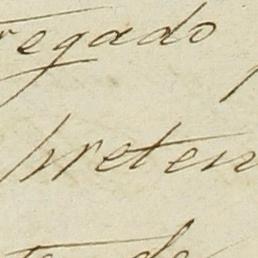 regado
preten
de